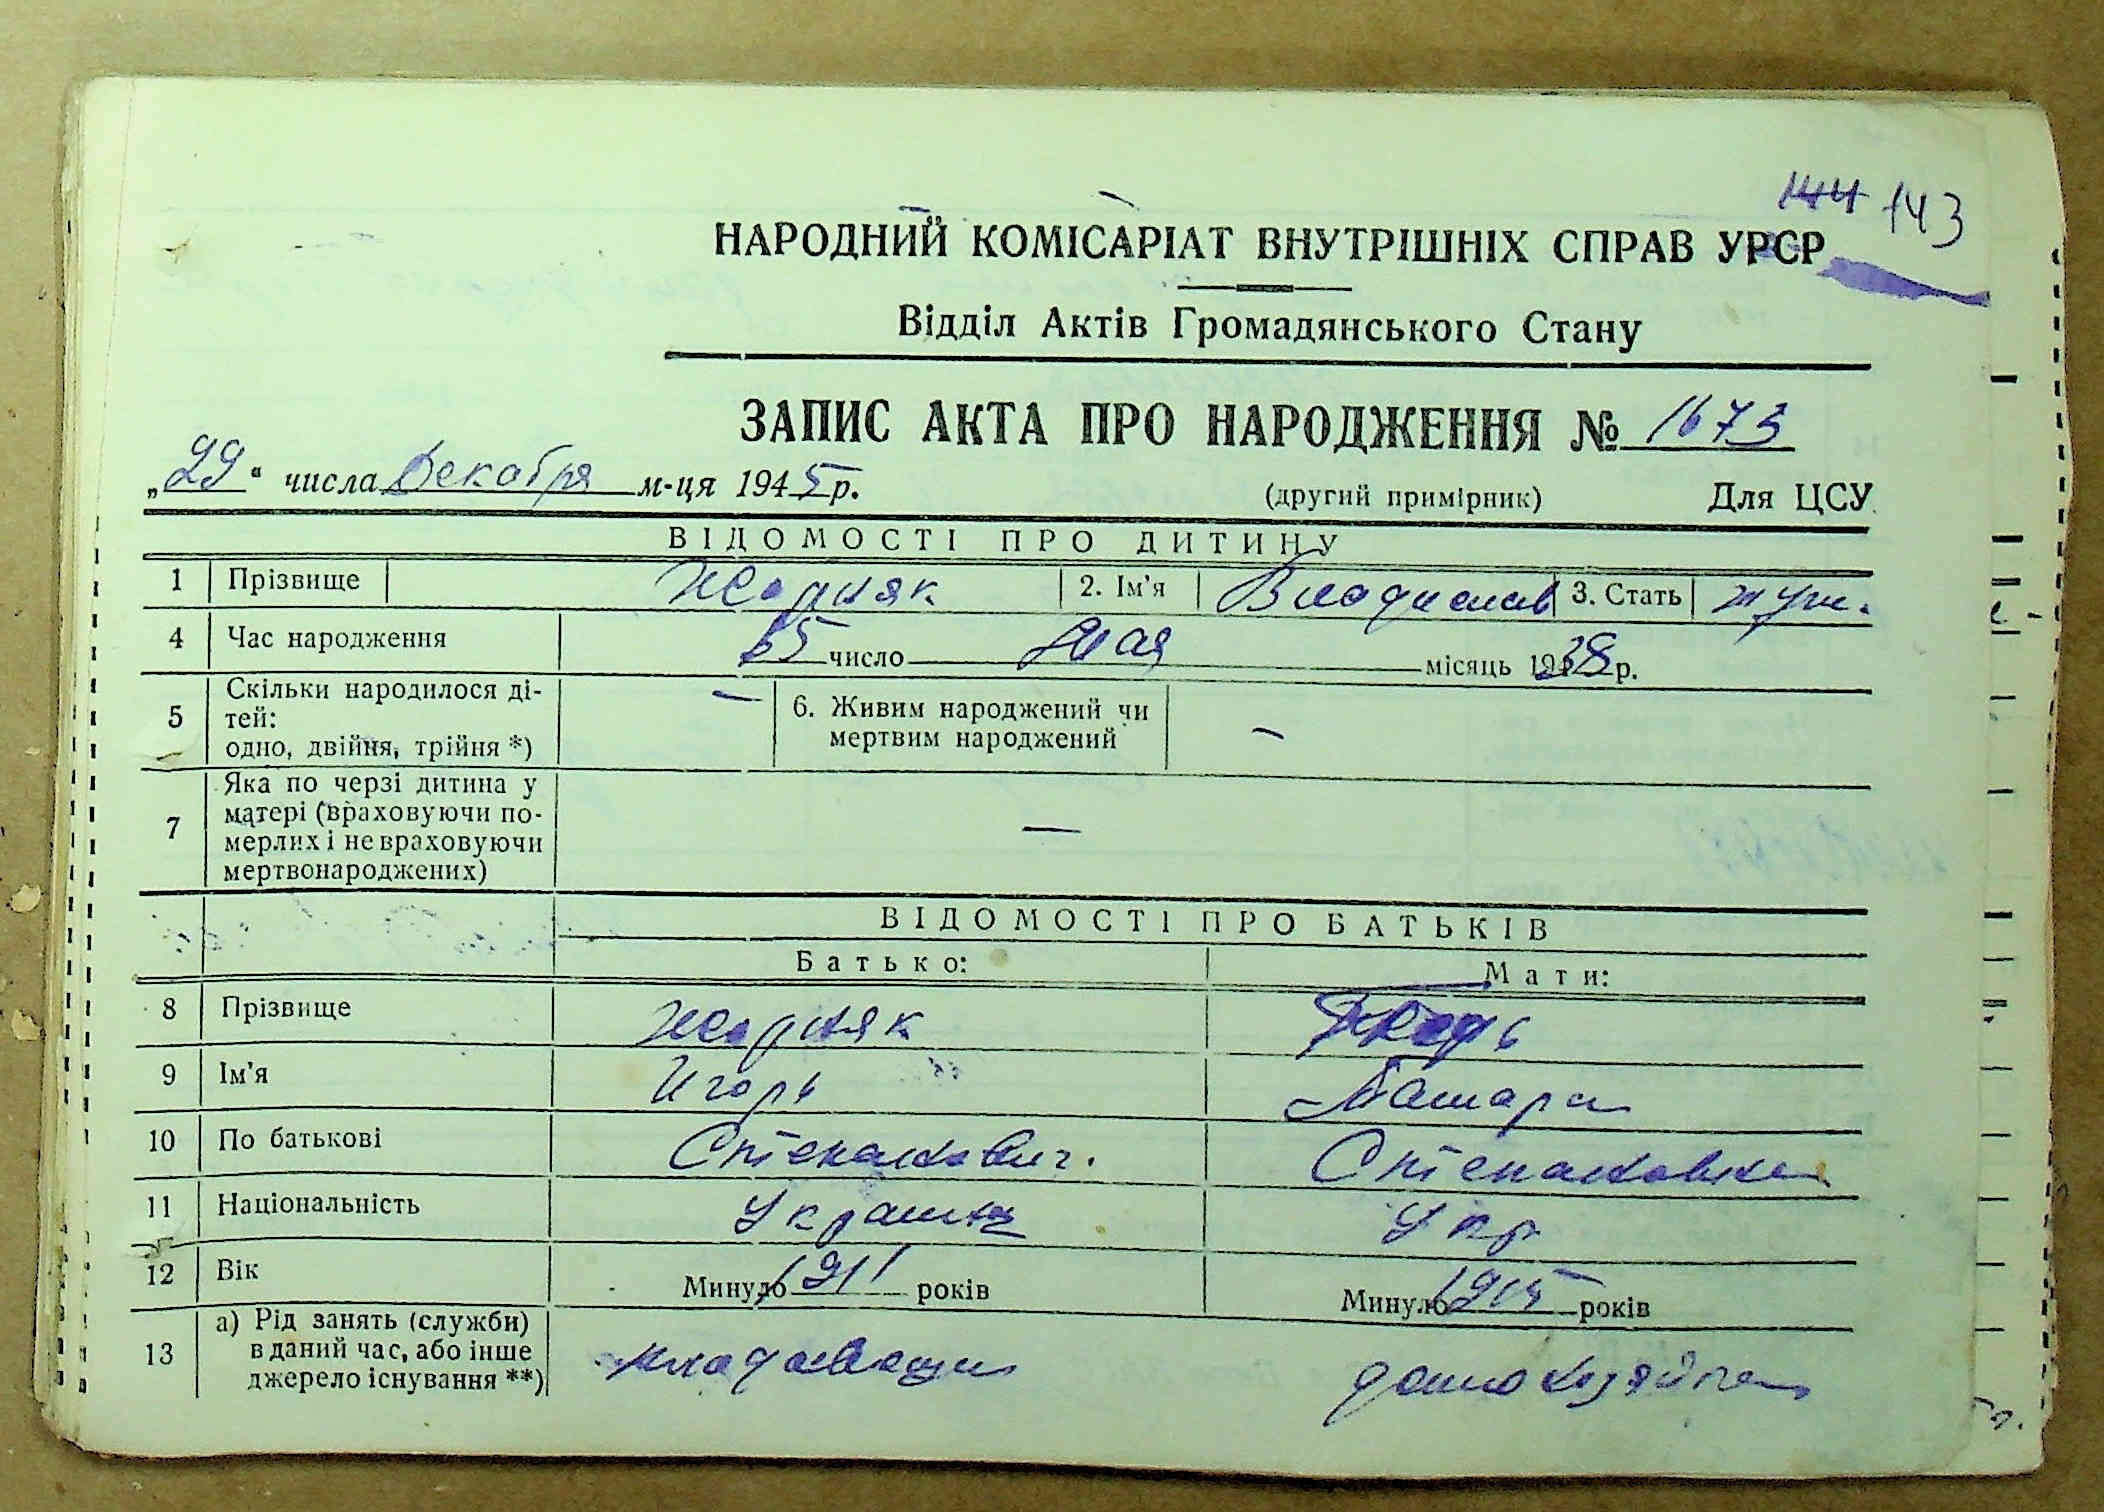 144 143
НАРОДНИЙ КОМІСАРІАТ ВНУТРІШНІХ СПРАВ УРСР
Відділ Актів Громадянського Стану
ЗАПИС АКТА ПРО НАРОДЖЕННЯ № 1673
„29“ числа Декабря м-ця 1945 р.
(другий примірник) Для ЦСУ
ВІДОМОСТІ ПРО ДИТИНУ
1 Прізвище 2. Ім'я Владислав 3. Стать муж.
4 Час народження число Мая місяць 1938 р.
5 Скільки народилося ді-
тей:
одно, двійня, трійня *) — 6. Живим народжений чи
мертвим народжений —
7 Яка по черзі дитина у
матері (враховуючи по-
мерлих і не враховуючи
мертвонароджених) —
ВІДОМОСТІ ПРО БАТЬКІВ
Батько: Мати:
8 Прізвище
9 Ім'я Игорь Тамара
10 По батькові Степанович. Степановна
11 Національність Украинц Укр
12 Вік Минуло 1911 років Минуло 1915 років
13 а) Рід занять (служби)
в даний час, або інше
джерело існування **) кладовщик домохозяйка